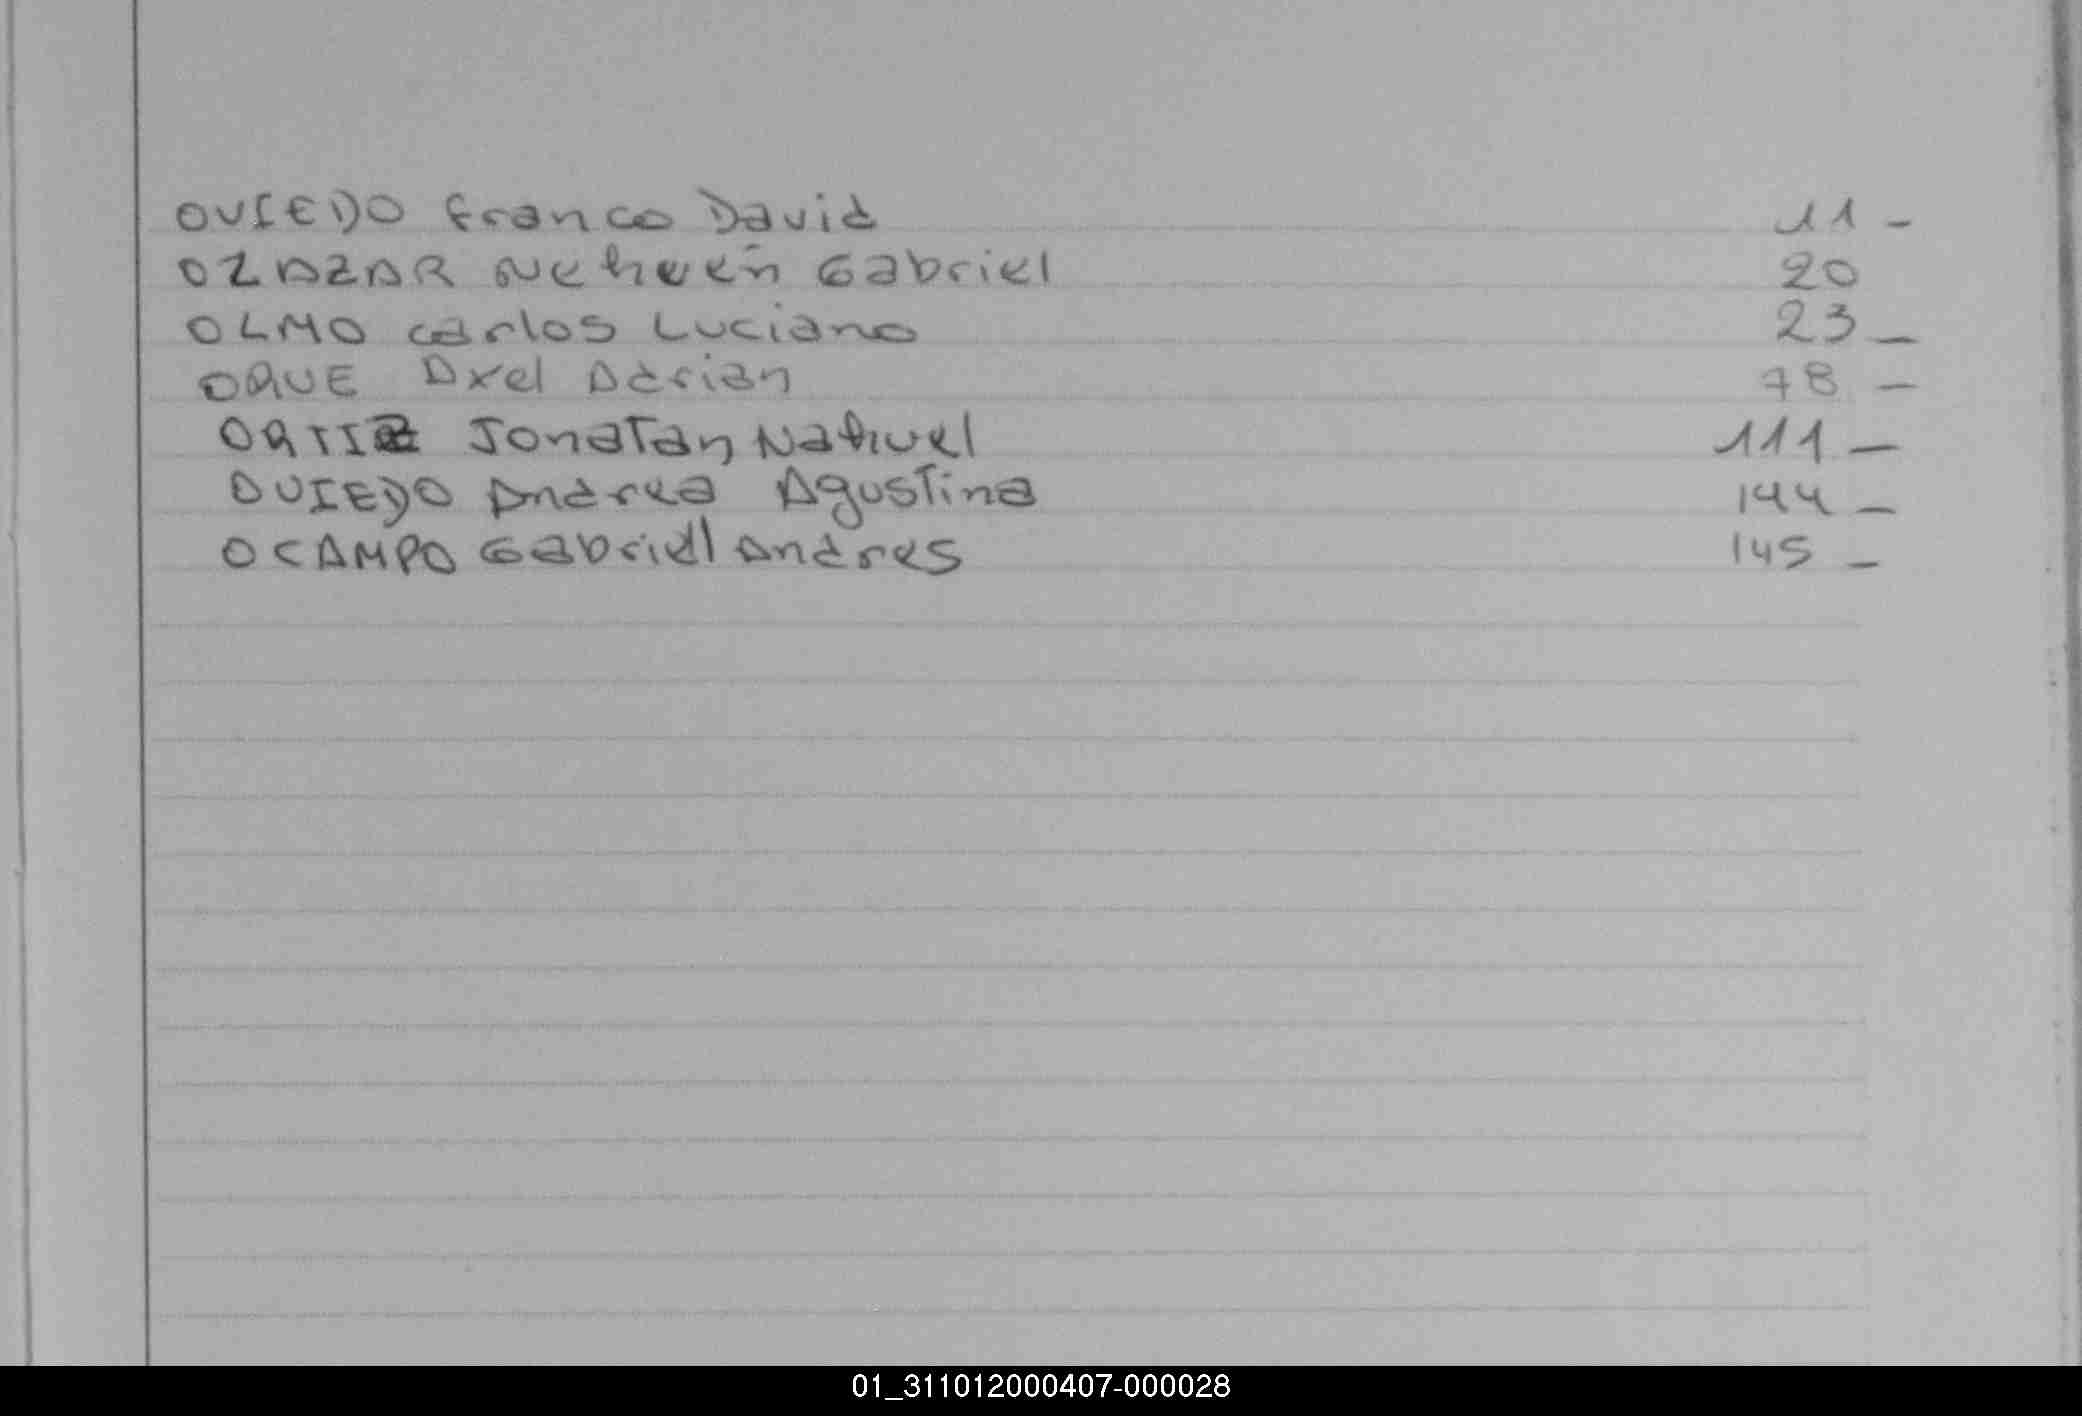 OVIEDO Franco David 11 -
OZAZAR Nehuén Gabriel 20
OLMO Carlos Luciano 23 -
ORUE Axel Adrian 78 -
ORTIZ Jonatan Nahuel 111 -
OVIEDO Andrea Agustina 144 -
OCAMPO Gabriel Andres 145 -
01_311012000407-000028